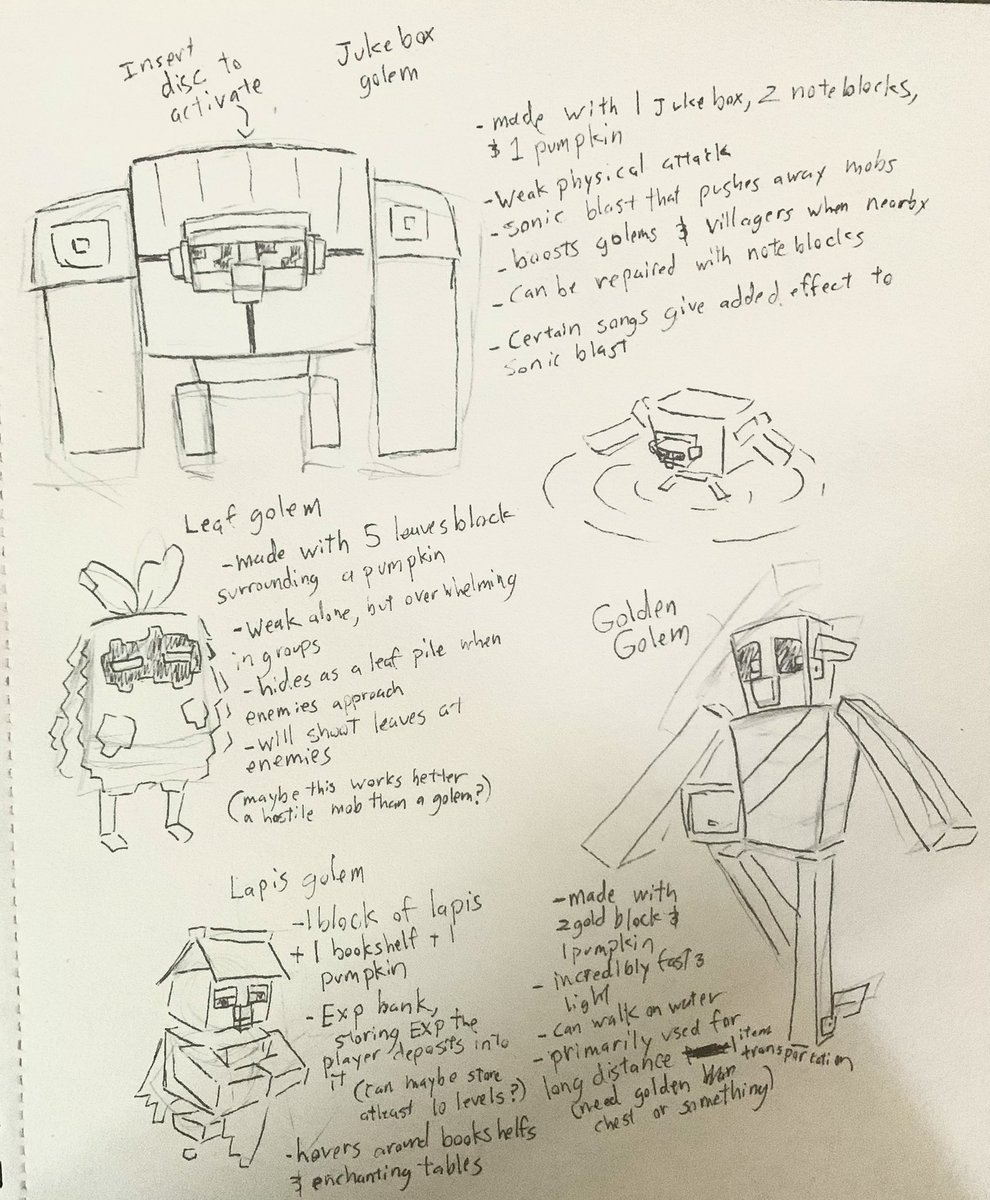 Insert
disc to
activate
Jukebox
golem
- made with 1 Jukebox, 2 noteblocks,
& 1 pumpkin
- Weak physical attack
- Sonic blast that pushes away mobs
- boosts golems & villagers when nearby
- Can be repaired with noteblocks
- Certain songs give added effect to
sonic blast
Leaf golem
- made with 5 leaves block
surrounding a pumpkin
- Weak alone, but overwhelming
in groups
- hides as a leaf pile when
enemies approach
- will shoot leaves at
enemies
(maybe this works better
a hostile mob than a golem?)
Golden
Golem
- made with
2 gold block &
1 pumpkin
- incredibly fast &
light
- can walk on water
- primarily used for
long distance items transportation
(need golden
chest or something)
Lapis golem
- 1 block of lapis
+ 1 bookshelf + 1
pumpkin
- Exp bank,
storing EXP the
player deposits into
it
(can maybe store
atleast 10 levels?)
- hovers around bookshelfs
& enchanting tables